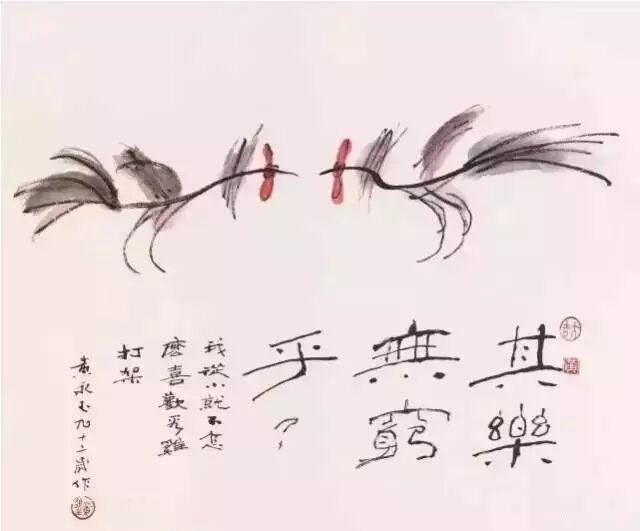 其樂
無窮
乎？
我從小就不怎
麽喜歡看雞
打架
黃永玉九十二歲作